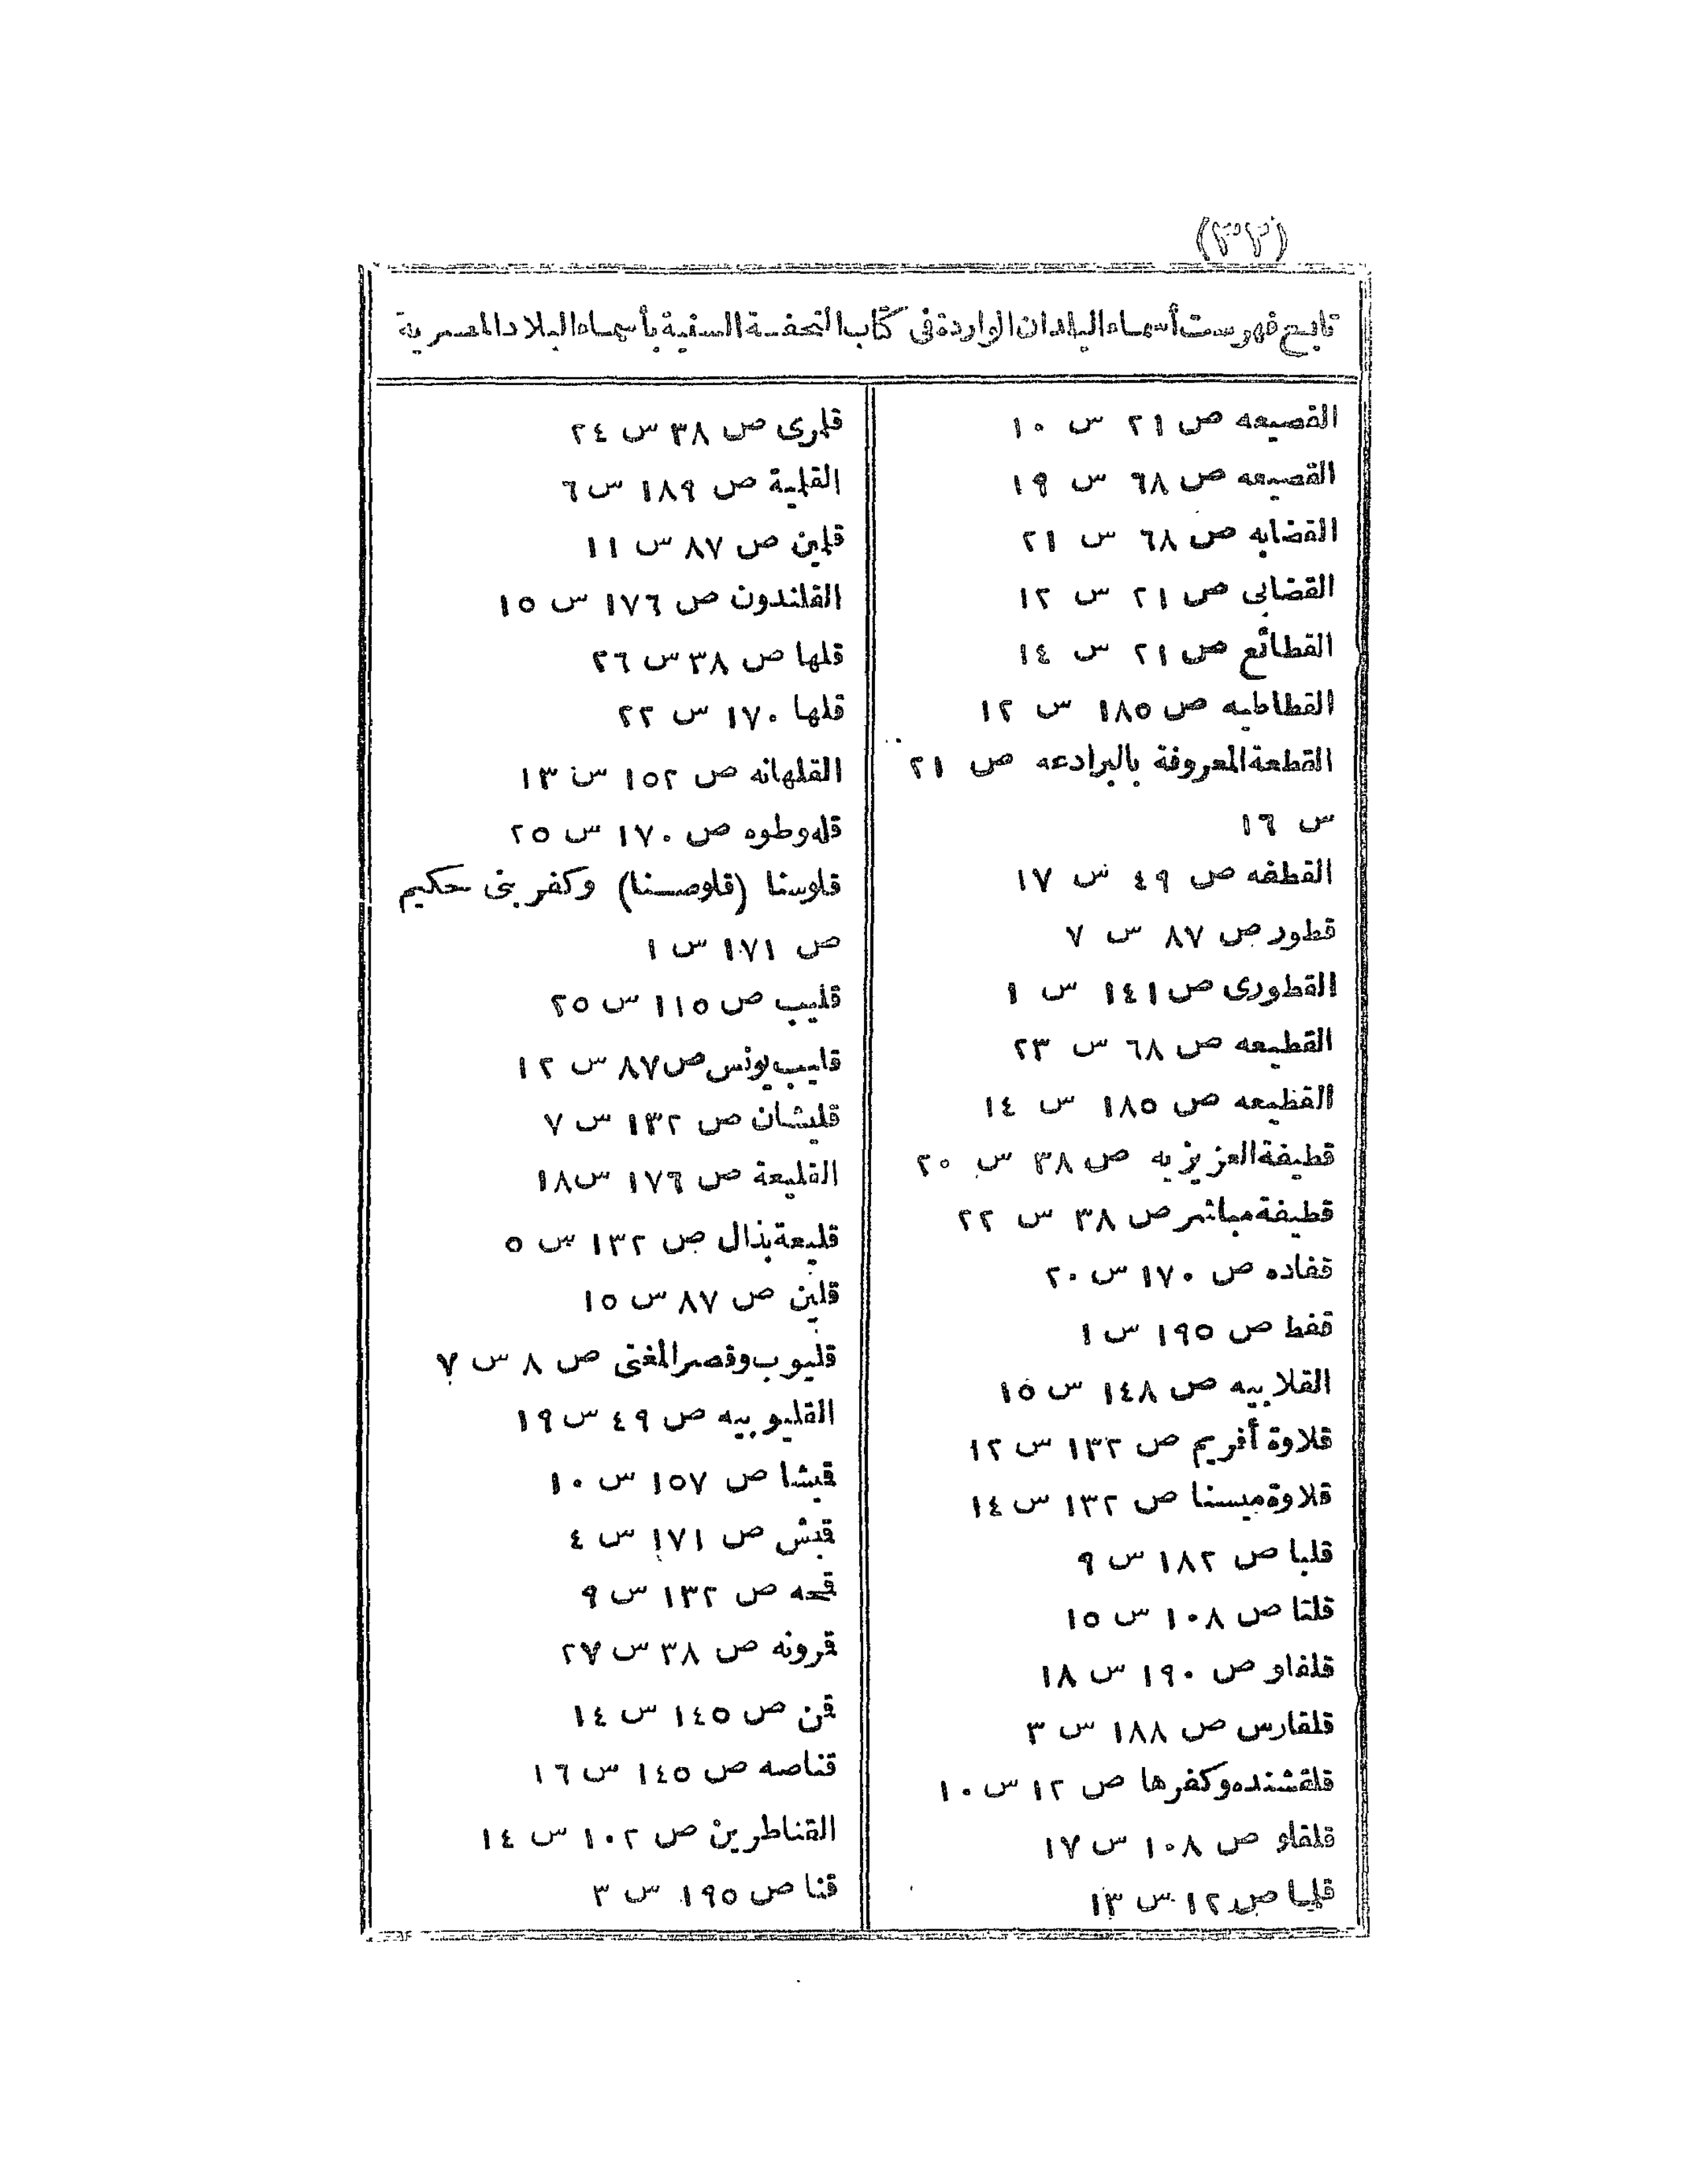 (٣٢)
تابع فهرست أسماء البلدان الواردة فى كتاب التحفة السنية بأسماء البلاد المصرية
القصيعه ص ٢١ س ١٠
القصيعه ص ٦٨ س ١٩
القضابه ص ٦٨ س ٢١
القضابى ص ٢١ س ١٢
القطائع ص ٢١ س ١٤
القطاطيه ص ١٨٥ س ١٢
القطعة المعروفة بالبرادعه ص ٢١
س ١٦
القطفه ص ٤٩ س ١٧
قطور ص ٨٧ س ٧
القطورى ص ١٤١ س ١
القطيعه ص ٦٨ س ٢٣
القطيعه ص ١٨٥ س ١٤
قطيفة العزيزيه ص ٣٨ س ٢٠
قطيفة مباشر ص ٣٨ س ٢٢
قفاده ص ١٧٠ س ٢٠
قفط ص ١٩٥ س ١
القلابيه ص ١٤٨ س ١٥
قلاوة أفريم ص ١٣٢ س ١٢
قلاوة ميسنا ص ١٣٢ س ١٤
قلبا ص ١٨٢ س ٩
قلتا ص ١٠٨ س ١٥
قلفاو ص ١٩٠ س ١٨
قلقارس ص ١٨٨ س ٣
قلقشنده وكفرها ص ١٢ س ١٠
قلقاو ص ١٠٨ س ١٧
قلما ص ١٢ س ١٣
قلمرى ص ٣٨ س ٢٤
القلمية ص ١٨٩ س ٦
قلمين ص ٨٧ س ١١
القلندون ص ١٧٦ س ١٥
قلها ص ٣٨ س ٢٦
قلها ١٧٠ س ٢٢
القلهانه ص ١٥٢ س ١٣
قله وطوه ص ١٧٠ س ٢٥
قلوسنا (قلوصنا) وكفر بنى حكيم
ص ١٧١ س ١
قليب ص ١١٥ س ٢٥
قليب يونس ص ٨٧ س ١٢
قليشان ص ١٣٢ س ٧
القليعة ص ١٧٦ س ١٨
قليعة بذال ص ١٣٢ س ٥
قلين ص ٨٧ س ١٥
قليوب وقصر المغنى ص ٨ س ٧
القليوبيه ص ٤٩ س ١٩
قمبشا ص ١٥٧ س ١٠
قمبش ص ١٧١ س ٤
قمحه ص ١٣٢ س ٩
قمرونه ص ٣٨ س ٢٧
قمن ص ١٤٥ س ١٤
قناصه ص ١٤٥ س ١٦
القناطرين ص ١٠٢ س ١٤
قنا ص ١٩٥ س ٣